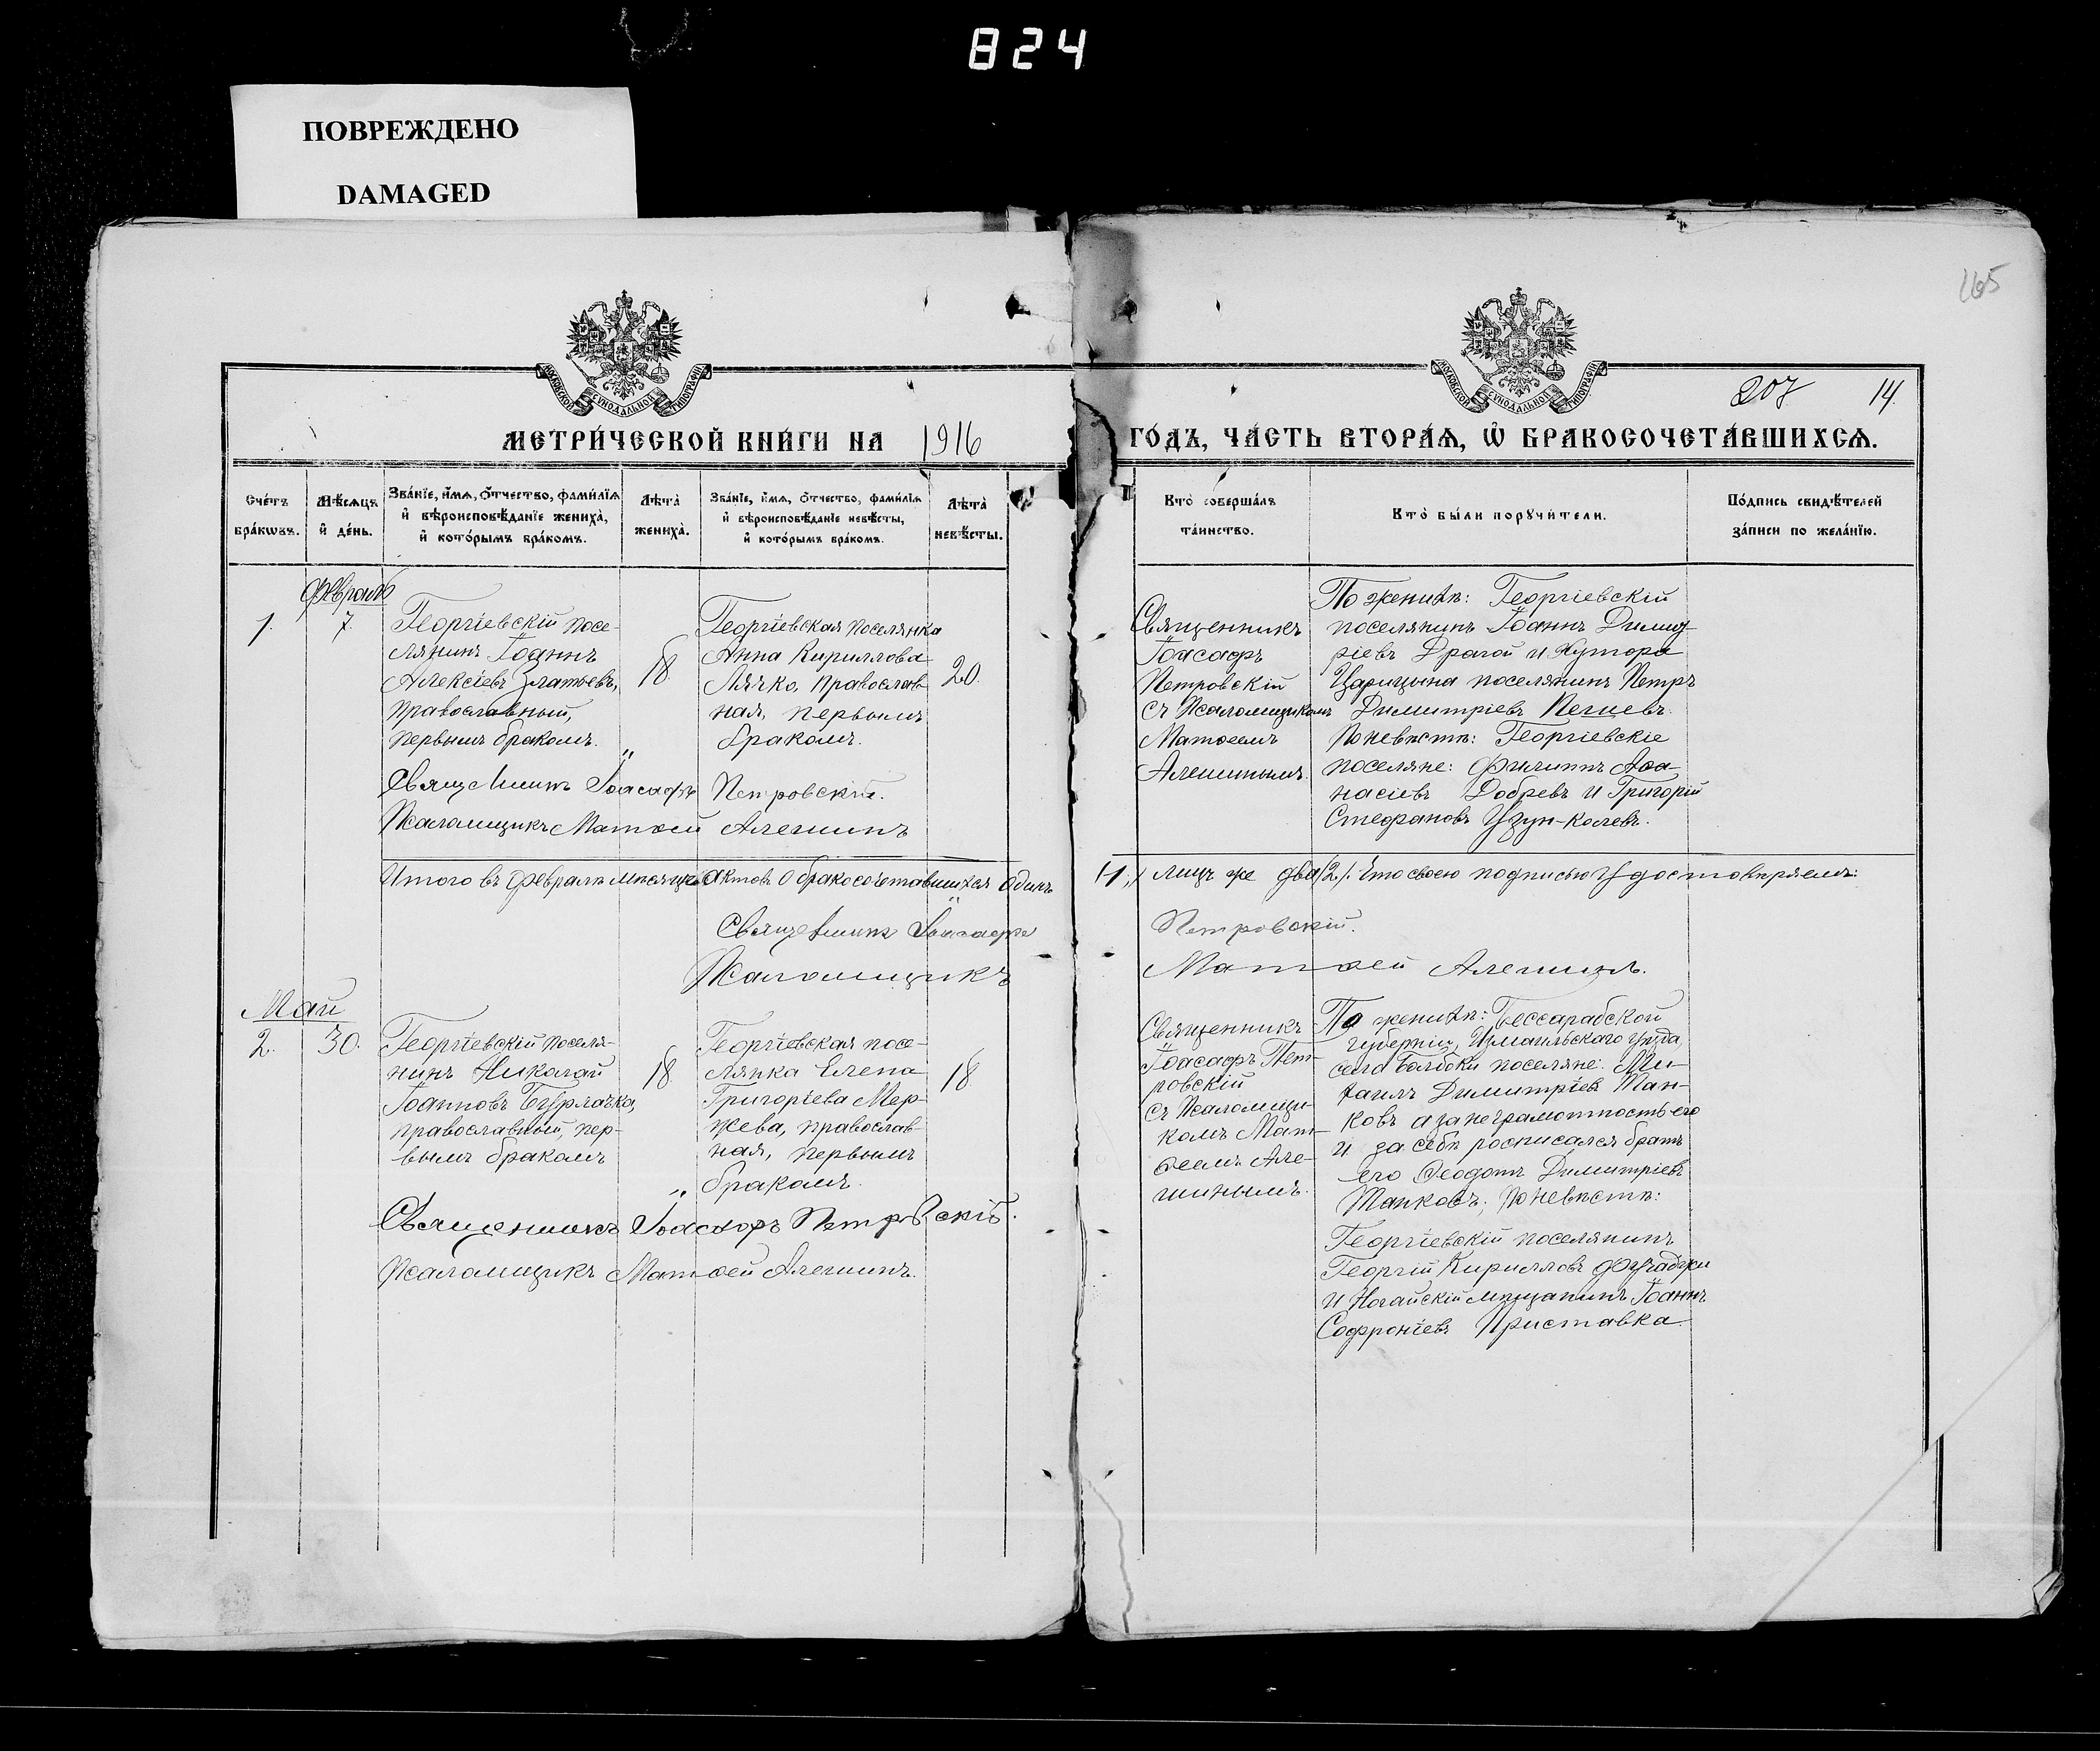 824
ПОВРЕЖДЕНО
DAMAGED
165
МОСКОВСКОЙ СУНОДАЛЬНОЙ ТИПОГРАФІИ
МОСКОВСКОЙ СУНОДАЛЬНОЙ ТИПОГРАФІИ
207 14.
МЕТРИ́ЧЕСКОЙ КНИ́ГИ НА 1916 ГО́ДЪ, ЧА́СТЬ ВТОРА́Ѧ, Ѡ БРАКОСОЧЕТА́ВШИХСѦ.
Сче́тъ
бра́кѡвъ.
Мѣ́сѧцъ
и́ де́нь.
Зва́нїе, и́мѧ, о́тчество, фами́лїѧ
и́ вѣроисповѣ́данїе жениха̀,
и́ кото́рымъ бра́комъ.
Лѣта̀
жениха̀.
Зва́нїе, и́мѧ, о́тчество, фами́лїѧ
и́ вѣроисповѣ́данїе невѣ́сты,
и́ кото́рымъ бра́комъ.
Лѣта̀
невѣ́сты.
Кто̀ соверша́лъ
та́инство.
Кто̀ бы́ли порꙋчи́тели.
По́дпись свидѣ́телей
за́писи по жела́нїю.
Февраль
1.
7.
Георгіевскій посе-
лянинъ Іоаннъ
Алексіевъ Златьевъ,
православный,
первымъ бракомъ.
18.
Георгіевская поселянка
Анна Кириллова
Лячко, православ-
ная, первымъ
бракомъ.
20.
Священникъ
Іоасафъ
Петровскій
съ Псаломщикомъ
Матѳеемъ
Алешинымъ.
По женихѣ: Георгіевскій
поселянинъ Іоаннъ Димит-
ріевъ Драгой и Хутора
Царицына поселянинъ Петръ
Димитріевъ Пегиевъ.
По невѣстѣ: Георгіевскіе
поселяне: Филиппъ Аѳа-
насіевъ Добревъ и Григорій
Стефановъ Узун-Колевъ.
Священникъ Іоасафъ Петровскій.
Псаломщикъ Матѳей Алешинъ
Итого въ Февралѣ мѣсяцѣ актовъ о бракосочетавшихся одинъ /1/, лицъ же два /2/. Что своею подписью удостовѣряемъ:
Священникъ Іоасафъ Петровскій.
Псаломщикъ Матѳей Алешинъ.
Май
2.
30.
Георгіевскій поселя-
нинъ Николай
Іоанновъ Бурлачка,
православный, пер-
вымъ бракомъ
18.
Георгіевская посе-
лянка Елена
Григоріева Мер-
жева, православ-
ная, первымъ
бракомъ.
18.
Священникъ
Іоасафъ Пет-
ровскій
съ Псаломщи-
комъ Мат-
ѳеемъ Але-
шинымъ.
По женихѣ: Бессарабской
губерніи, Измаильскаго уѣзда,
села Болбоки поселяне: Ми-
хаилъ Димитріевъ Тан-
ковъ а за неграмотность его
и за себя росписался братъ
его Ѳеодотъ Димитріевъ
Танковъ; По невѣстѣ:
Георгіевскій поселянинъ
Георгій Кирилловъ Фучаджи
и Ногайскій мѣщанинъ Іоаннъ
Софроніевъ Приставка.
Священникъ Іоасафъ Петровскій.
Псаломщикъ Матѳей Алешинъ.